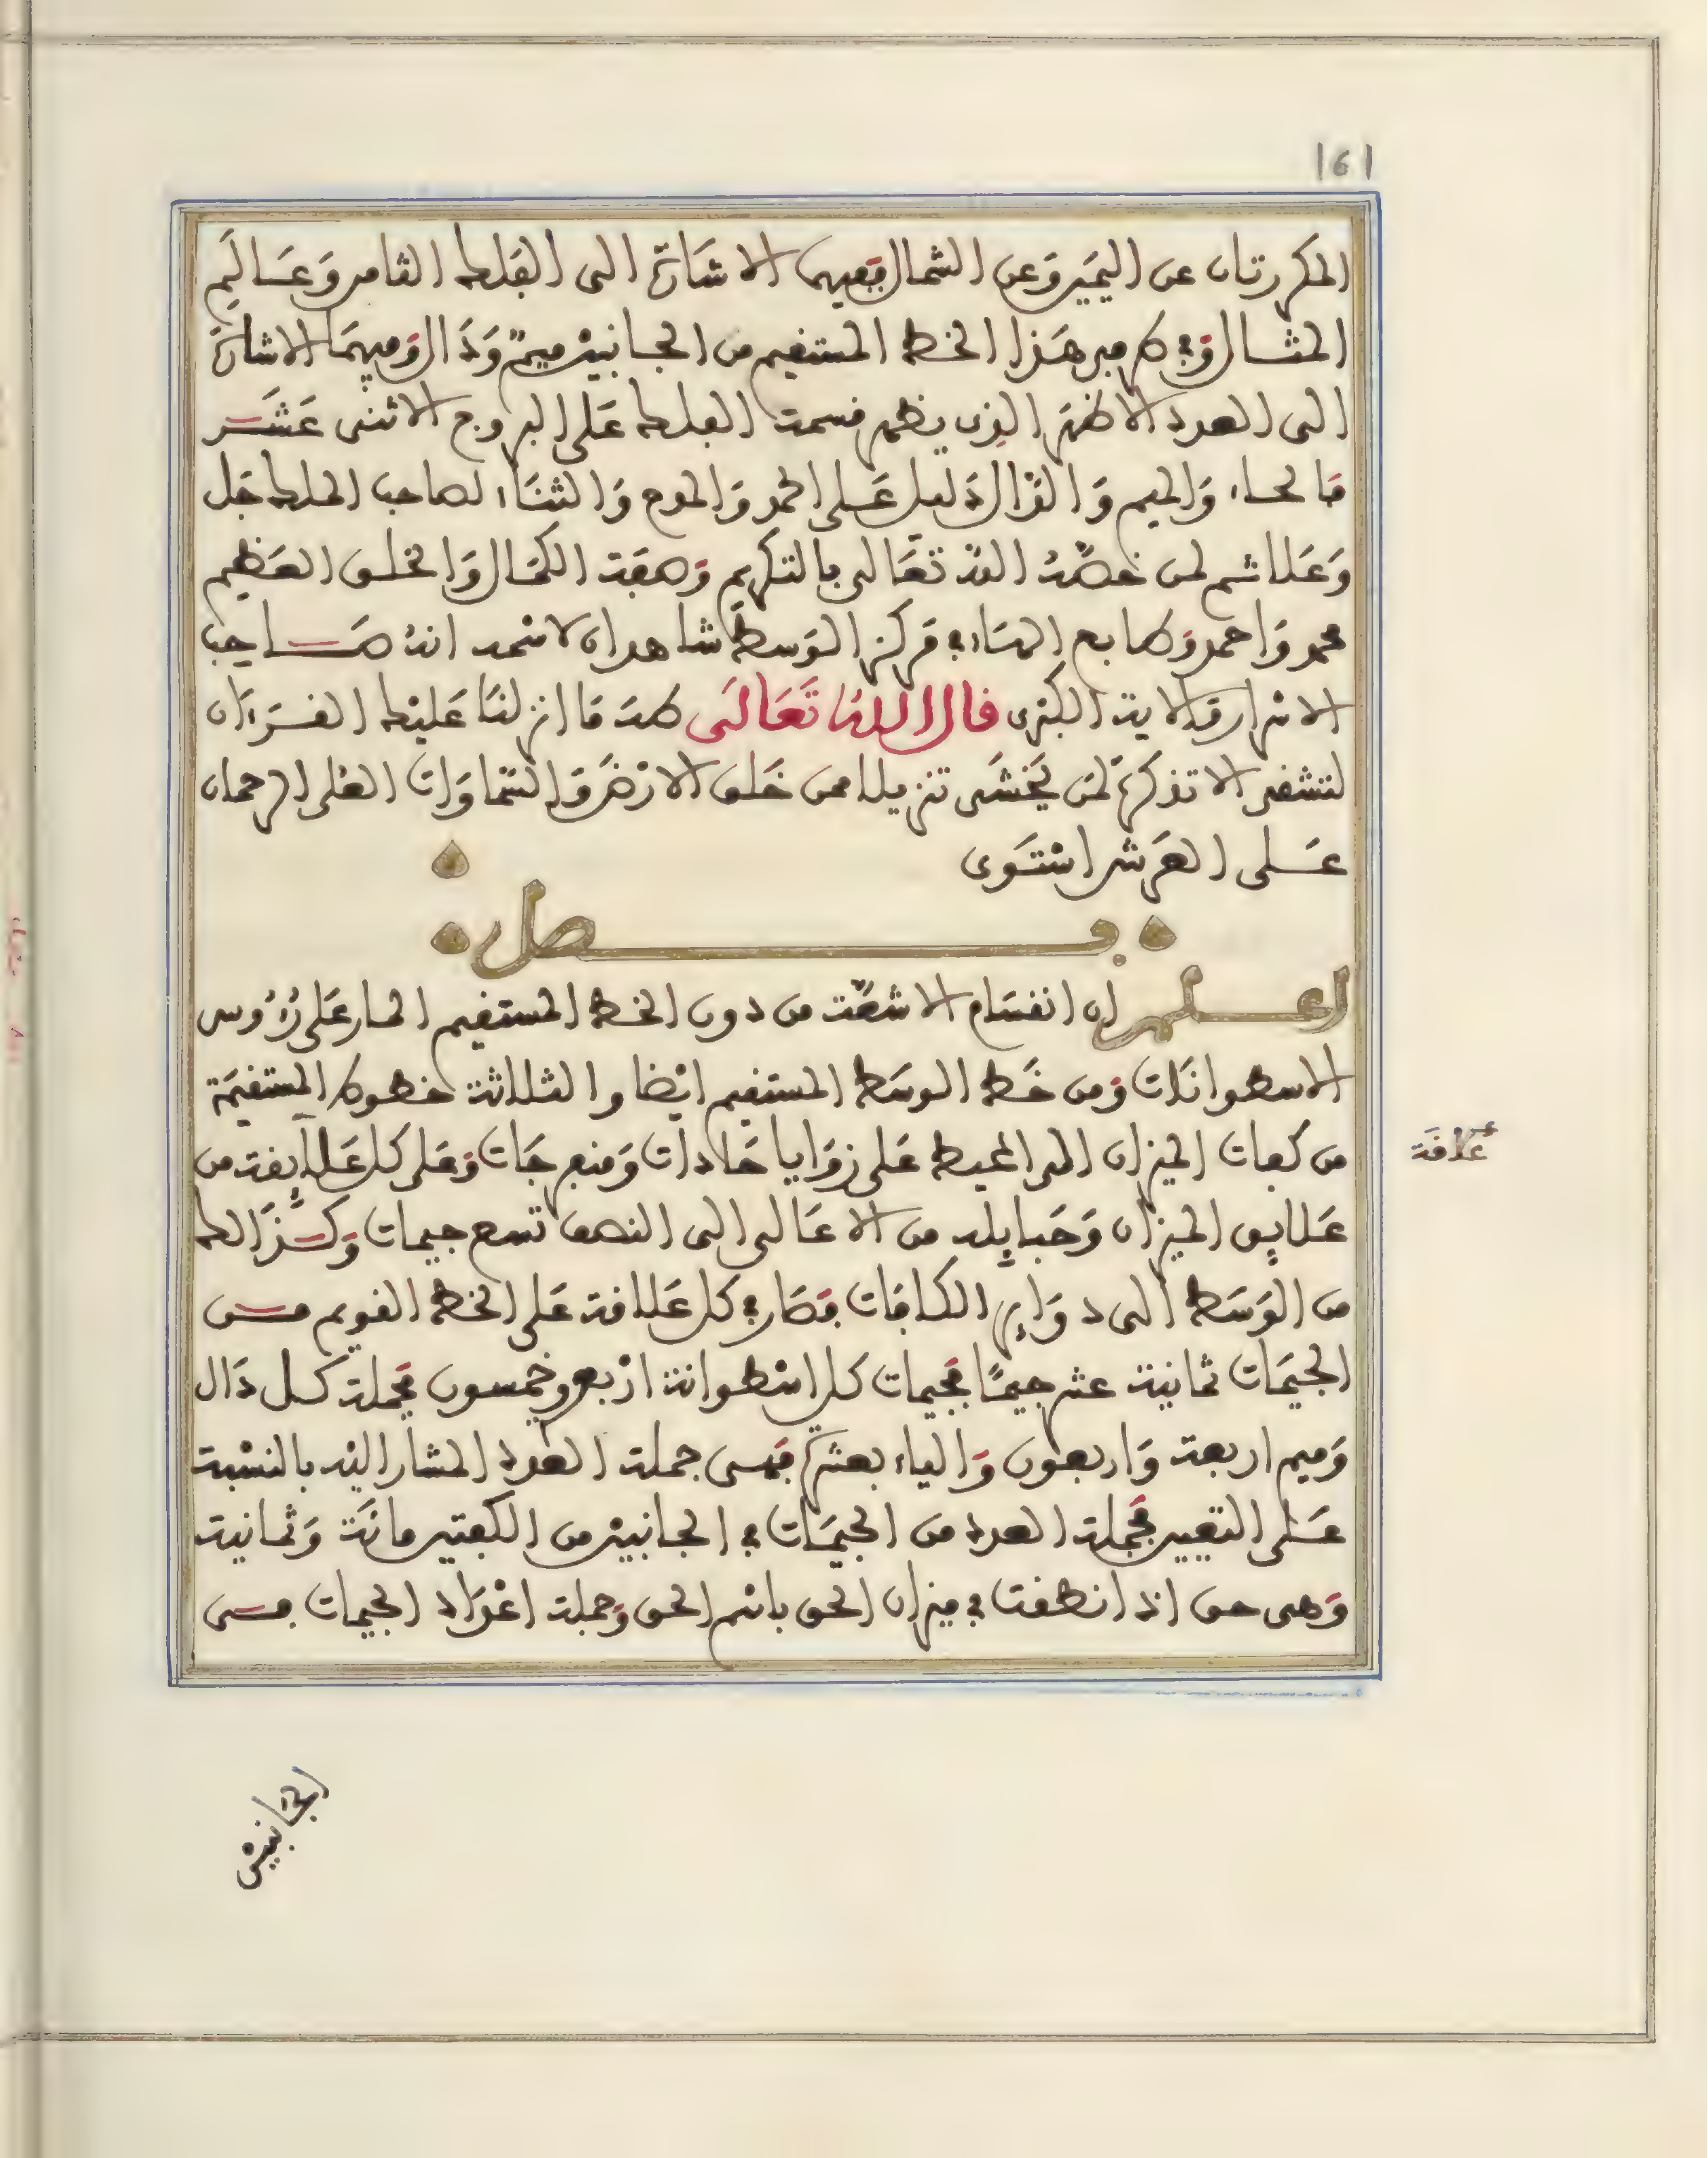 161
المكررتان عن اليمين وعن الشمال ففيهما الاشارة الى الفلك الثامن وعالم
المثال وفي كل من هذا الخط المستقيم من الجانبين ميم ودال وميهما الاشارة
الى العدد الاظهر الذي يظهر قسمت الفلك على البروج الاثنى عشر
فالحاء والميم والدال دليل على الحمد والمدح والثناء لصاحب الملك جل
وعلا ثم لمن خصه الله تعالى بالتكريم وصفة الكمال والخلق العظيم
محمد واحمد وطابع الهاء في مركز الوسط شاهدان لاحمد انه صاحب
الاسرار والاية الكبرى قال الله تعالى طه ما انزلنا عليك القرءان
لتشقى الا تذكرة لمن يخشى تنزيلا ممن خلق الارض والسماوات العلى الرحمان
على العرش استوى
فصل
اعلم ان انقسام الاشعة من دون الخط المستقيم المار على رءوس
الاسطوانات ومن خط الوسط المستقيم ايضا والثلاثة خطوط المستقيمة
من كعبات الميزان الى المحيط على زوايا حادات ومنفرجات وعلى كل علايقة من
علايق الميزان وحبايله من الاعالى الى النصف تسع جيمات وكذالك
من الوسط الى دواير الكافات فصار في كل علاقة على الخط القويم من
الجيمات ثمانية عشر جيما فجيمات كل اسطوانة اربع وخمسون فجملة كل دال
وميم اربعة واربعون والياء بعشرة فهي جملة العدد المشار اليه بالنسبة
على التعيير فجملة العدد من الجيمات في الجانبين من الكفتين مائة وثمانية
وهي حق اذ انطقت في ميزان الحق باسم الحق وجملة اعداد الجيمات من
علاقة
الجانبين